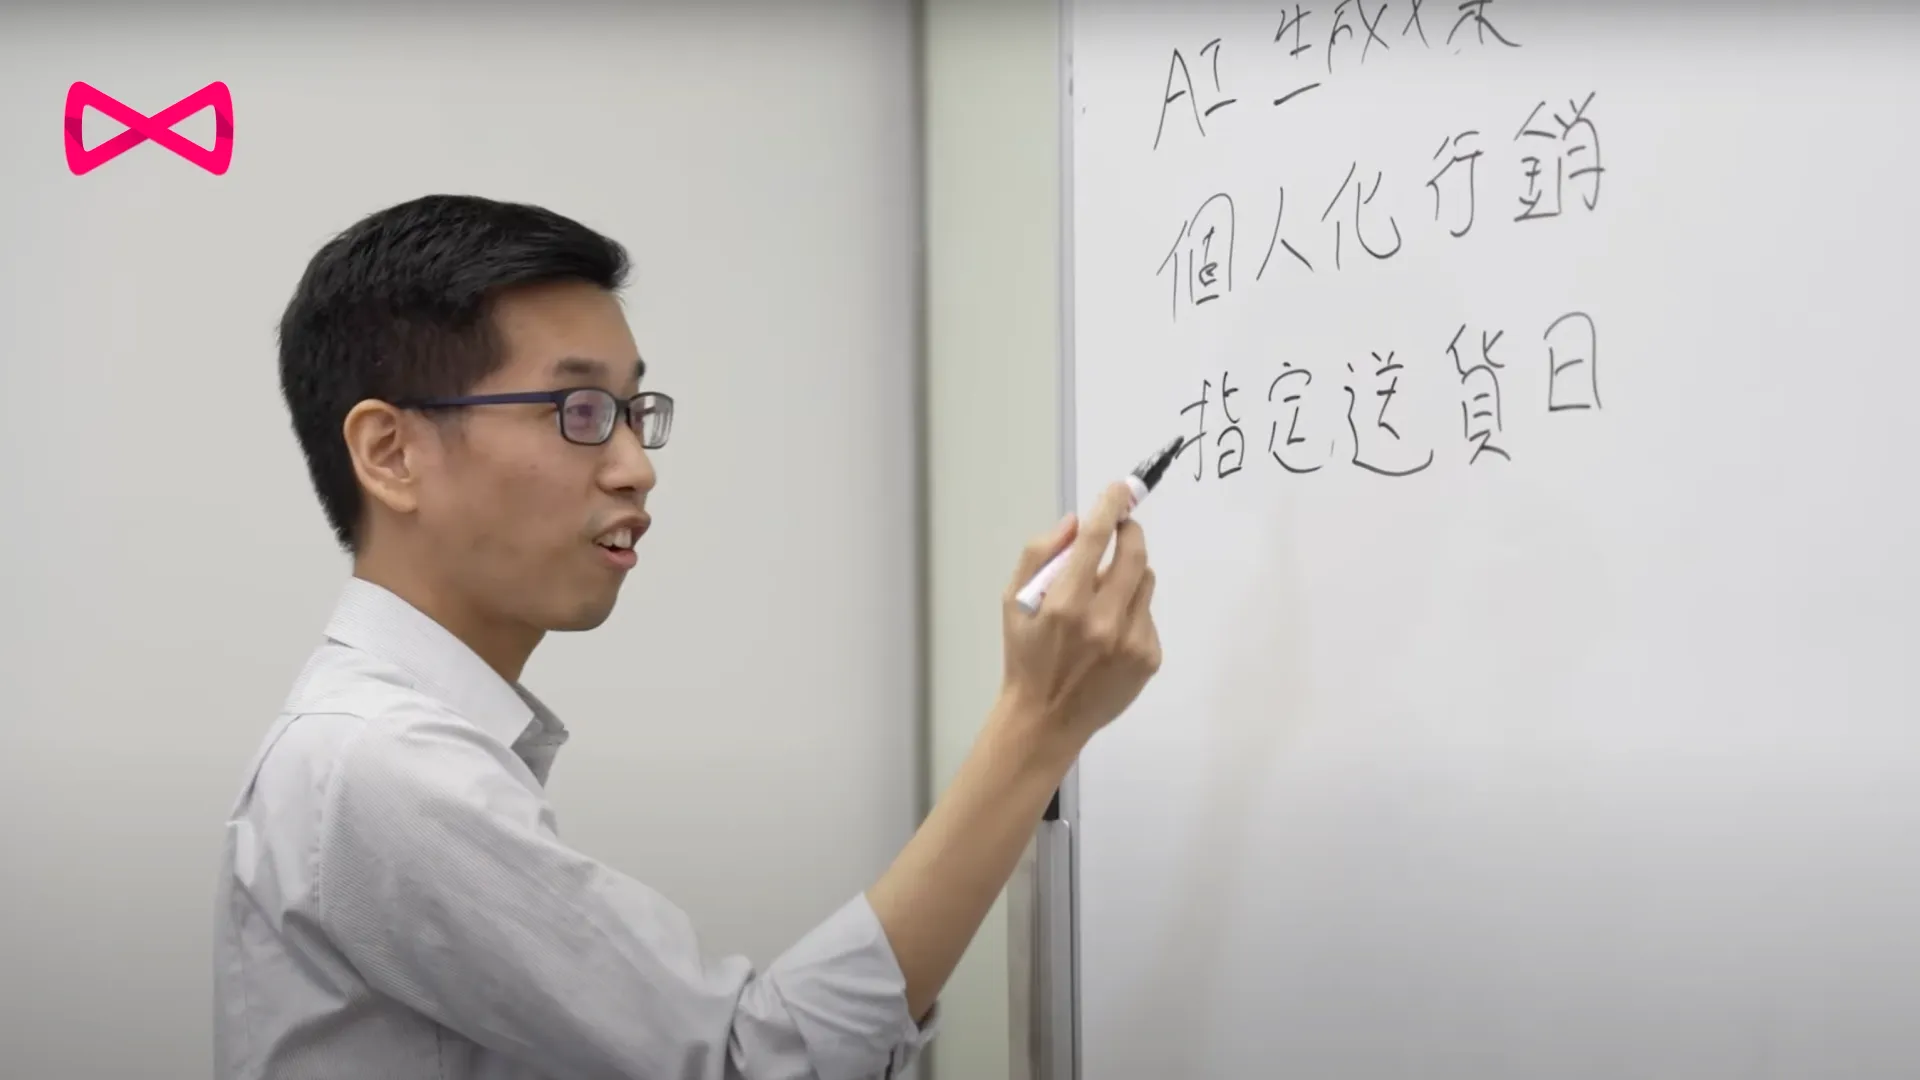 AI 生成文案
個人化行銷
指定送貨日